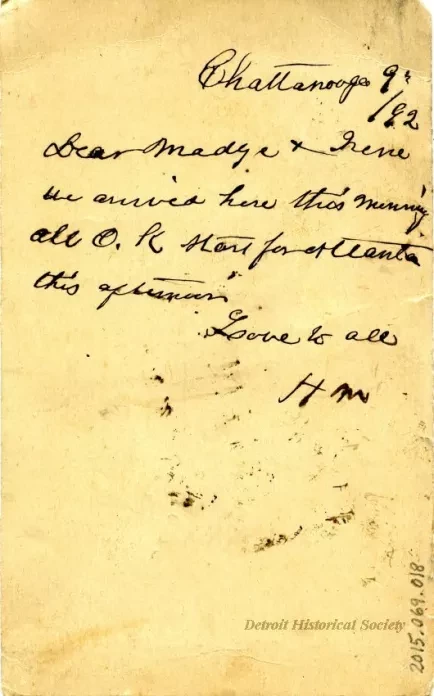 Chattanooga 9"
/92
Dear Madge & Irene
We arrived here this morning
all O.K start for Atlanta
this afternoon
Love to all
H M
Detroit Historical Society
2015.069.018